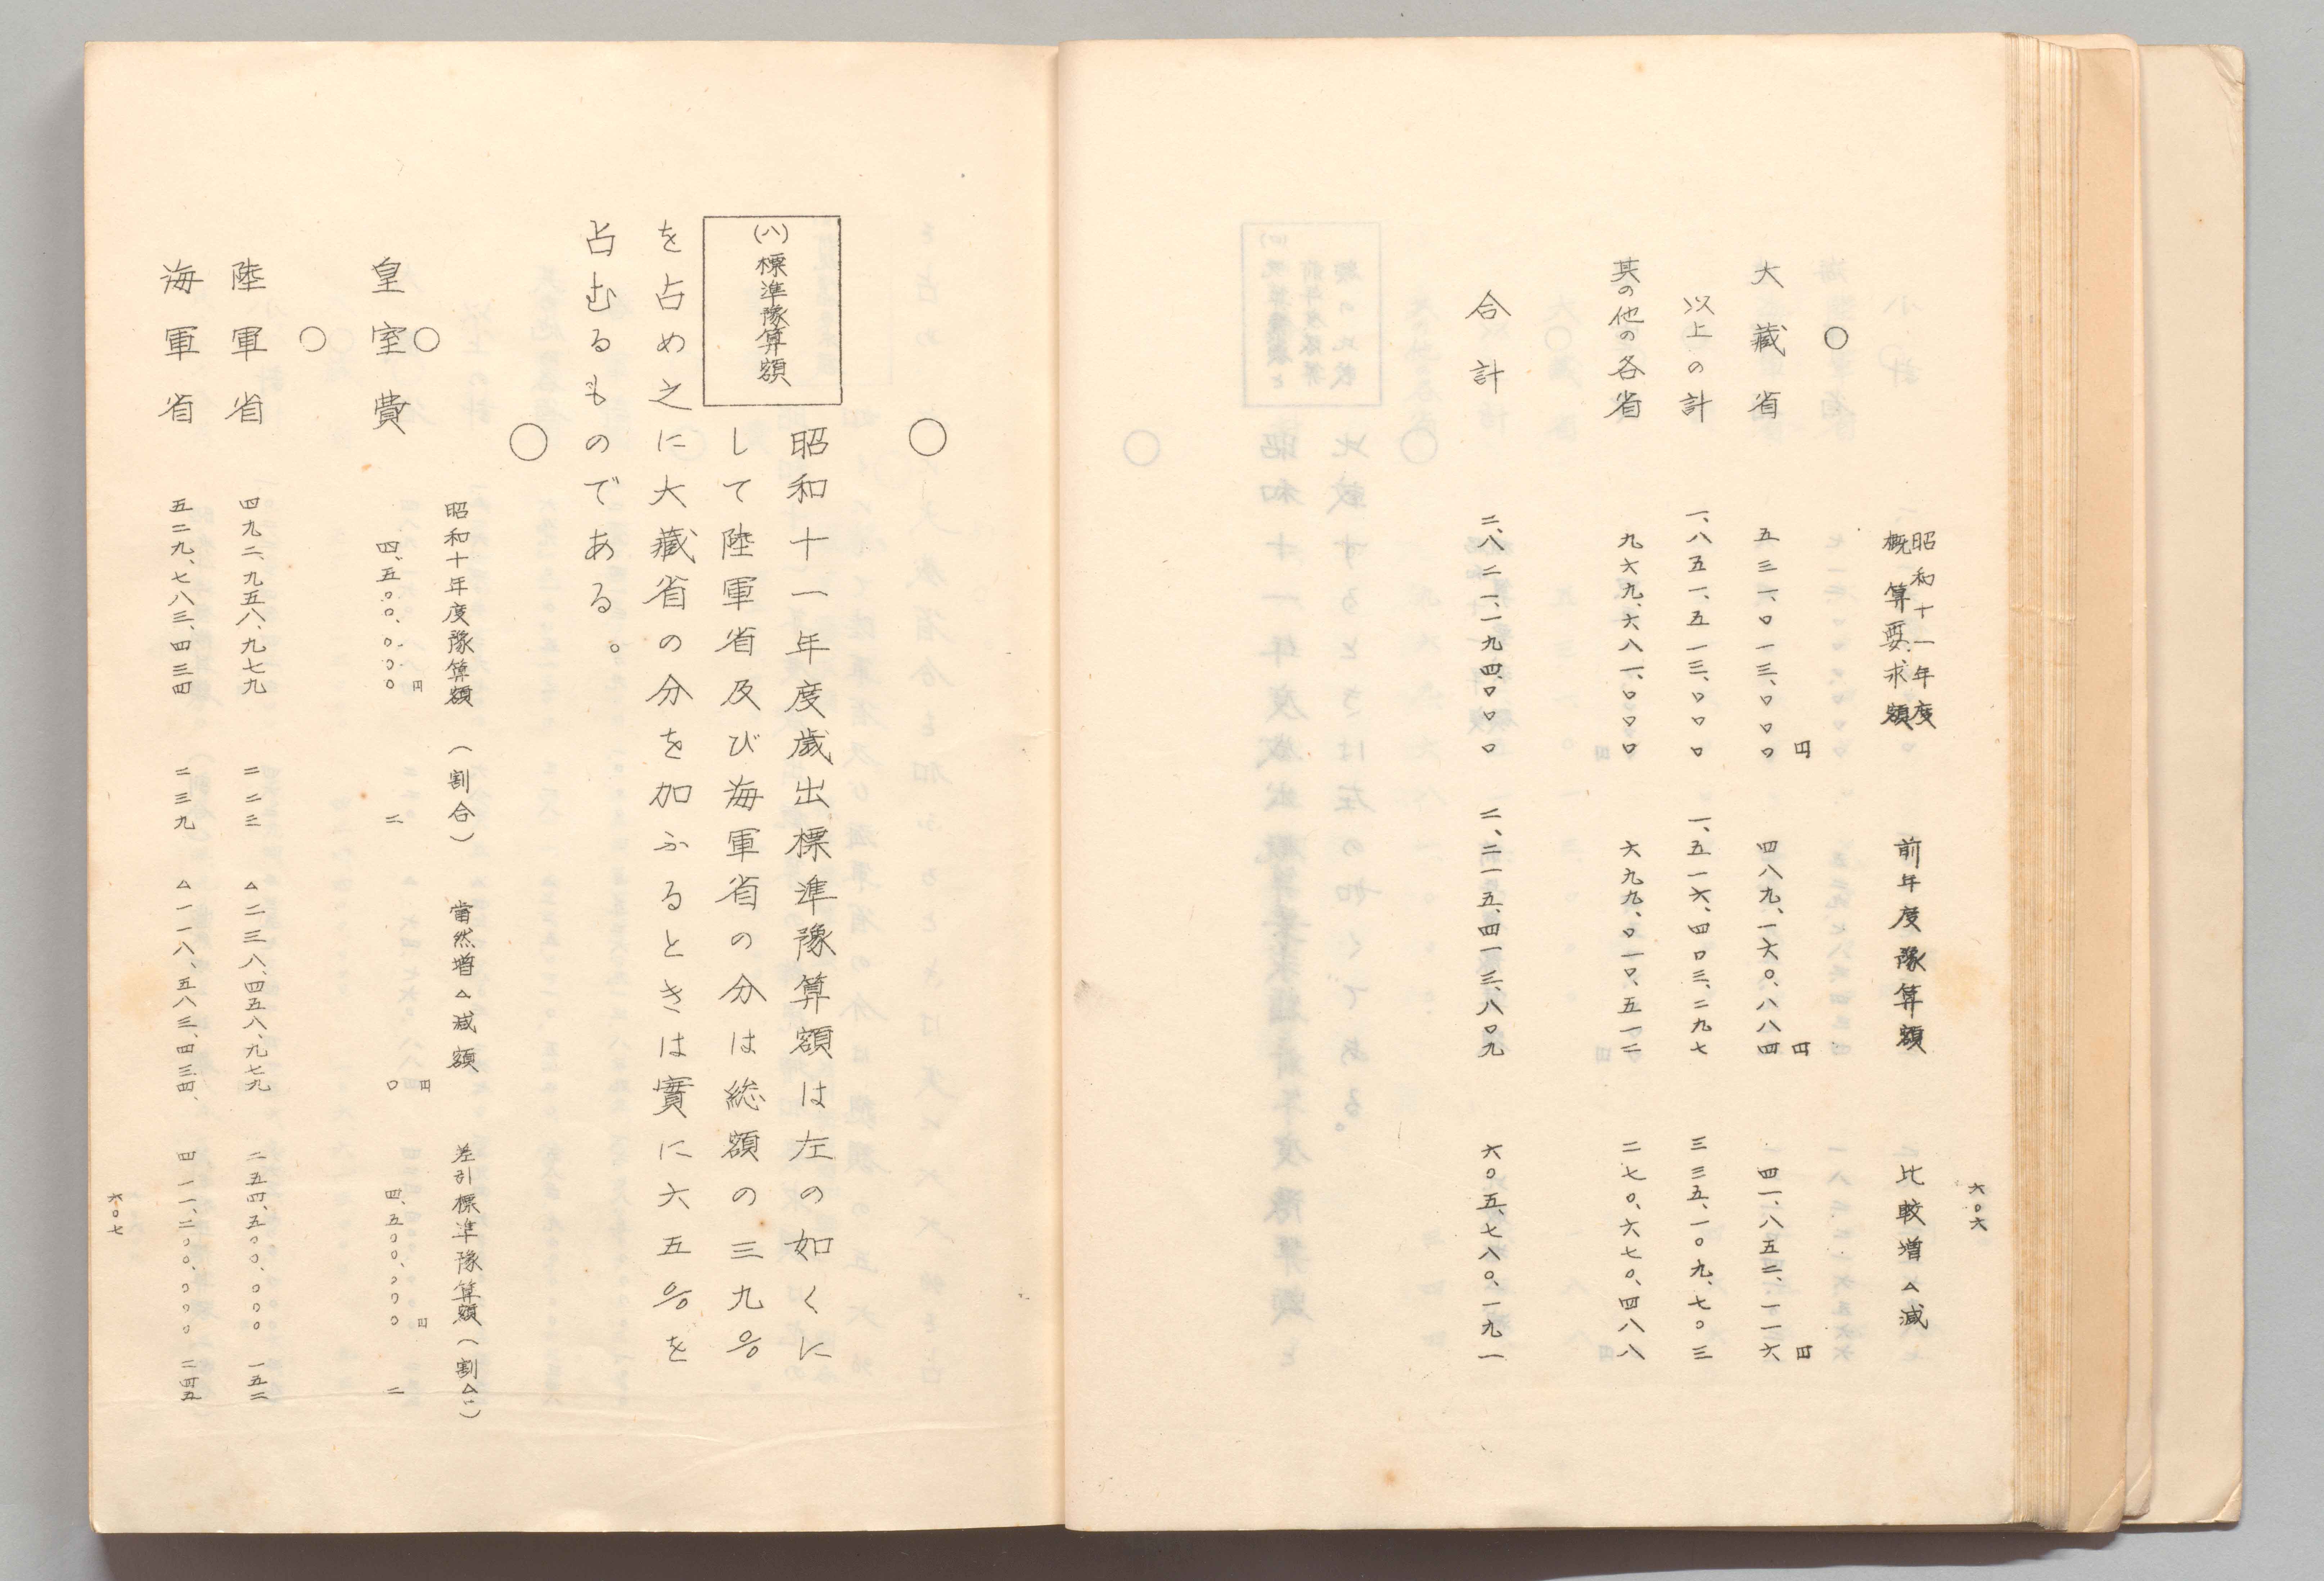 六〇六
昭和十一年度概算要求額　前年度豫算額　比較増△減
〇
大藏省　五三一、〇一三、〇〇〇円　四八九、一六〇、八八四円　四一、八五二、一一六円
以上の計　一、八五一、五一三、〇〇〇　一、五一六、四〇三、二九七　三三五、一〇九、七〇三
其の他の各省　九六九、六八一、〇〇〇　六九九、〇一〇、五一二　二七〇、六七〇、四八八
合計　二、八二一、一九四、〇〇〇　二、二一五、四一三、八〇九　六〇五、七八〇、一九一
〇
(八)標準豫算額
昭和十一年度歳出標準豫算額は左の如くに
して陸軍省及び海軍省の分は総額の三九%
を占め之に大藏省の分を加ふるときは實に六五%を
占むるものである。
〇
昭和十年度豫算額　(割合)　當然増△減額　差引標準豫算額(割合)
〇
皇室費　四、五〇〇、〇〇〇円　二　〇円　四、五〇〇、〇〇〇円　二
〇
陸軍省　四九二、九五八、九七九　二二三　△二三八、四五八、九七九　二五四、五〇〇、〇〇〇　一五二
海軍省　五二九、七八三、四三四　二三九　△一一八、五八三、四三四、　四一一、二〇〇、〇〇〇　二四五
六〇七